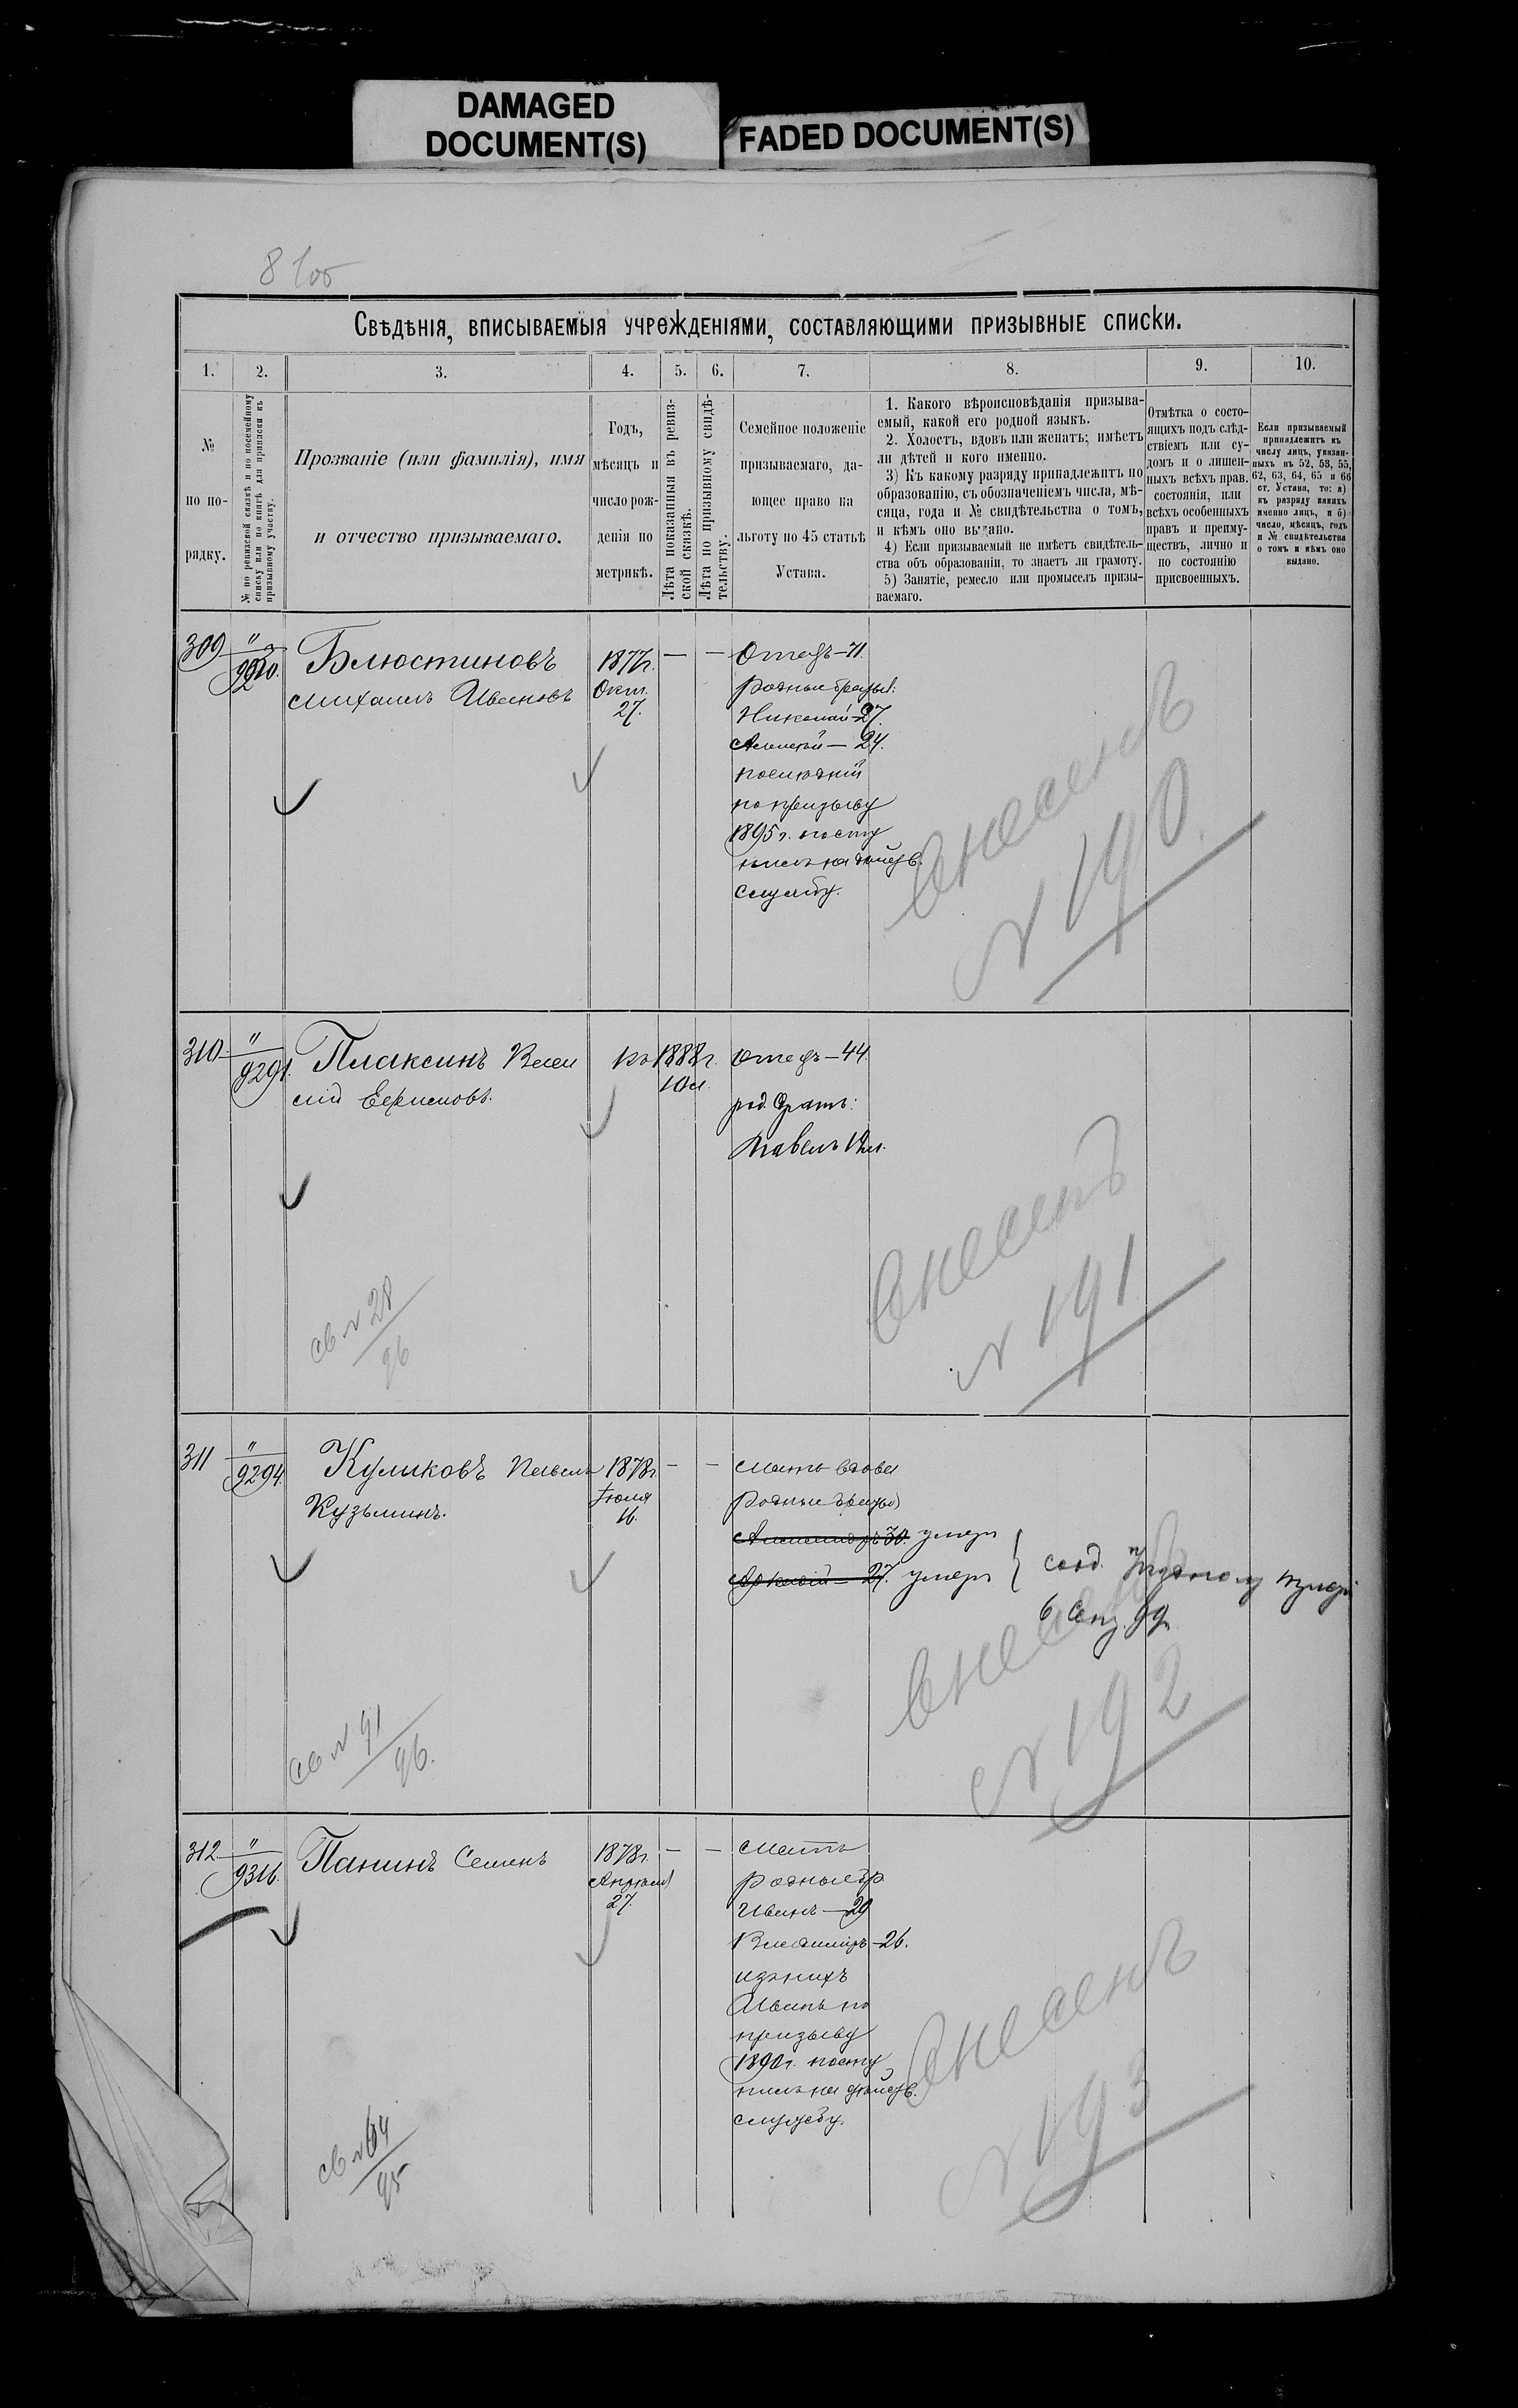 DAMAGED
DOCUMENT(S)
FADED DOCUMENT(S)
Свѣдѣнія, вписываемыя учрежденіями, составляющими призывные списки.
1. 2. 3. 4. 5. 6. 7. 8. 9. 10.
№
по по-
рядку.
№ по ревизской сказкѣ и по посемейному
списку или по книгѣ для приписки къ
призывному участку.
Прозваніе (или фамилія), имя
и отчество призываемаго.
Годъ,
мѣсяцъ и
число рож-
денія по
метрикѣ.
Лѣта показанныя въ ревиз-
ской сказкѣ.
Лѣта по призывному свидѣ-
тельству.
Семейное положеніе
призываемаго, да-
ющее право на
льготу по 45 статьѣ
Устава.
1. Какого вѣроисповѣданія призыва-
емый, какой его родной языкъ.
2. Холостъ, вдовъ или женатъ; имѣетъ
ли дѣтей и кого именно.
3) Къ какому разряду принадлежитъ по
образованію, съ обозначеніемъ числа, мѣ-
сяца, года и № свидѣтельства о томъ,
и кѣмъ оно выдано.
4) Если призываемый не имѣетъ свидѣтель-
ства объ образованіи, то знаетъ ли грамоту.
5) Занятіе, ремесло или промыселъ призы-
ваемаго.
Отмѣтка о состо-
ящихъ подъ слѣд-
ствіемъ или су-
домъ и о лишен-
ныхъ всѣхъ прав.
состоянія, или
всѣхъ особенныхъ
правъ и преиму-
ществъ, лично и
по состоянію
присвоенныхъ.
Если призываемый
принадлежитъ къ
числу лицъ, указан-
ныхъ въ 52, 53, 55,
62, 63, 64, 65 и 66
ст. Устава, то: а)
къ разряду какихъ
именно лицъ, и б)
число, мѣсяцъ, годъ
и № свидѣтельства
о томъ и кѣмъ оно
выдано.
309 "
Блюстиновъ
Михаилъ Ивановъ
1877г.
Окт.
27.
— —
Отецъ—71.
Родные братья:
Николай—27.
Алексѣй—24.
послѣдній
по призыву
1895г. посту
пилъ на дѣйств.
службу.
внесенъ
№ 190.
310. "
9291.
Плаксинъ Васи
лій Ефимовъ.
къ 1888г.
10л.
отецъ—44.
род. братъ:
Павелъ 12л.
внесенъ
№ 191
св № 28
96
311 "
9294.
Куликовъ Павелъ
Кузьминъ.
1878г
Іюля
16.
— —
Мать вдова
Родные братья
30. умеръ
27. умеръ
внесенъ
№ 192
св № 91
96.
312. "
9316.
Панинъ Семенъ
1878г.
Апрѣля
27.
— —
Мать
Родные бр.
Иванъ—29
Владиміръ—26.
изъ нихъ
Иванъ по
призыву
1890г. посту
пилъ на дѣйств.
службу.
внесенъ
№ 193
св № 64
95